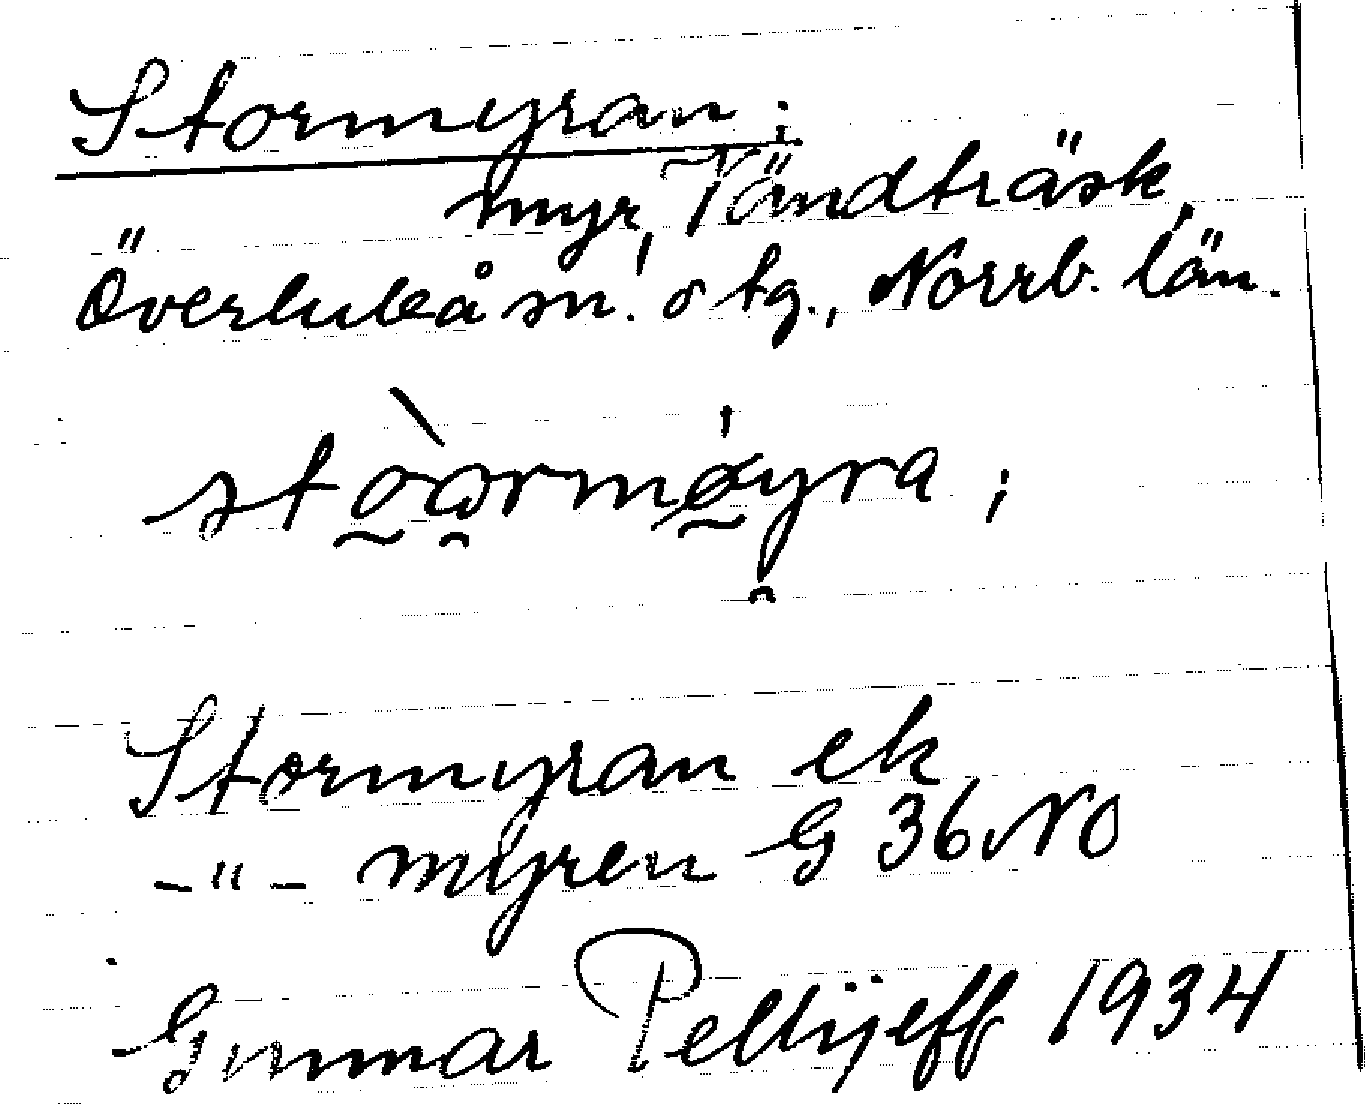 Stormyran;
myr, Vändträsk,
Överluleå sn. o tg., Norrb. län.
sto̰òrmǿ̰yra;
Stormyran ek
-"- myren G 36 NO
Gunnar Pellijeff 1934